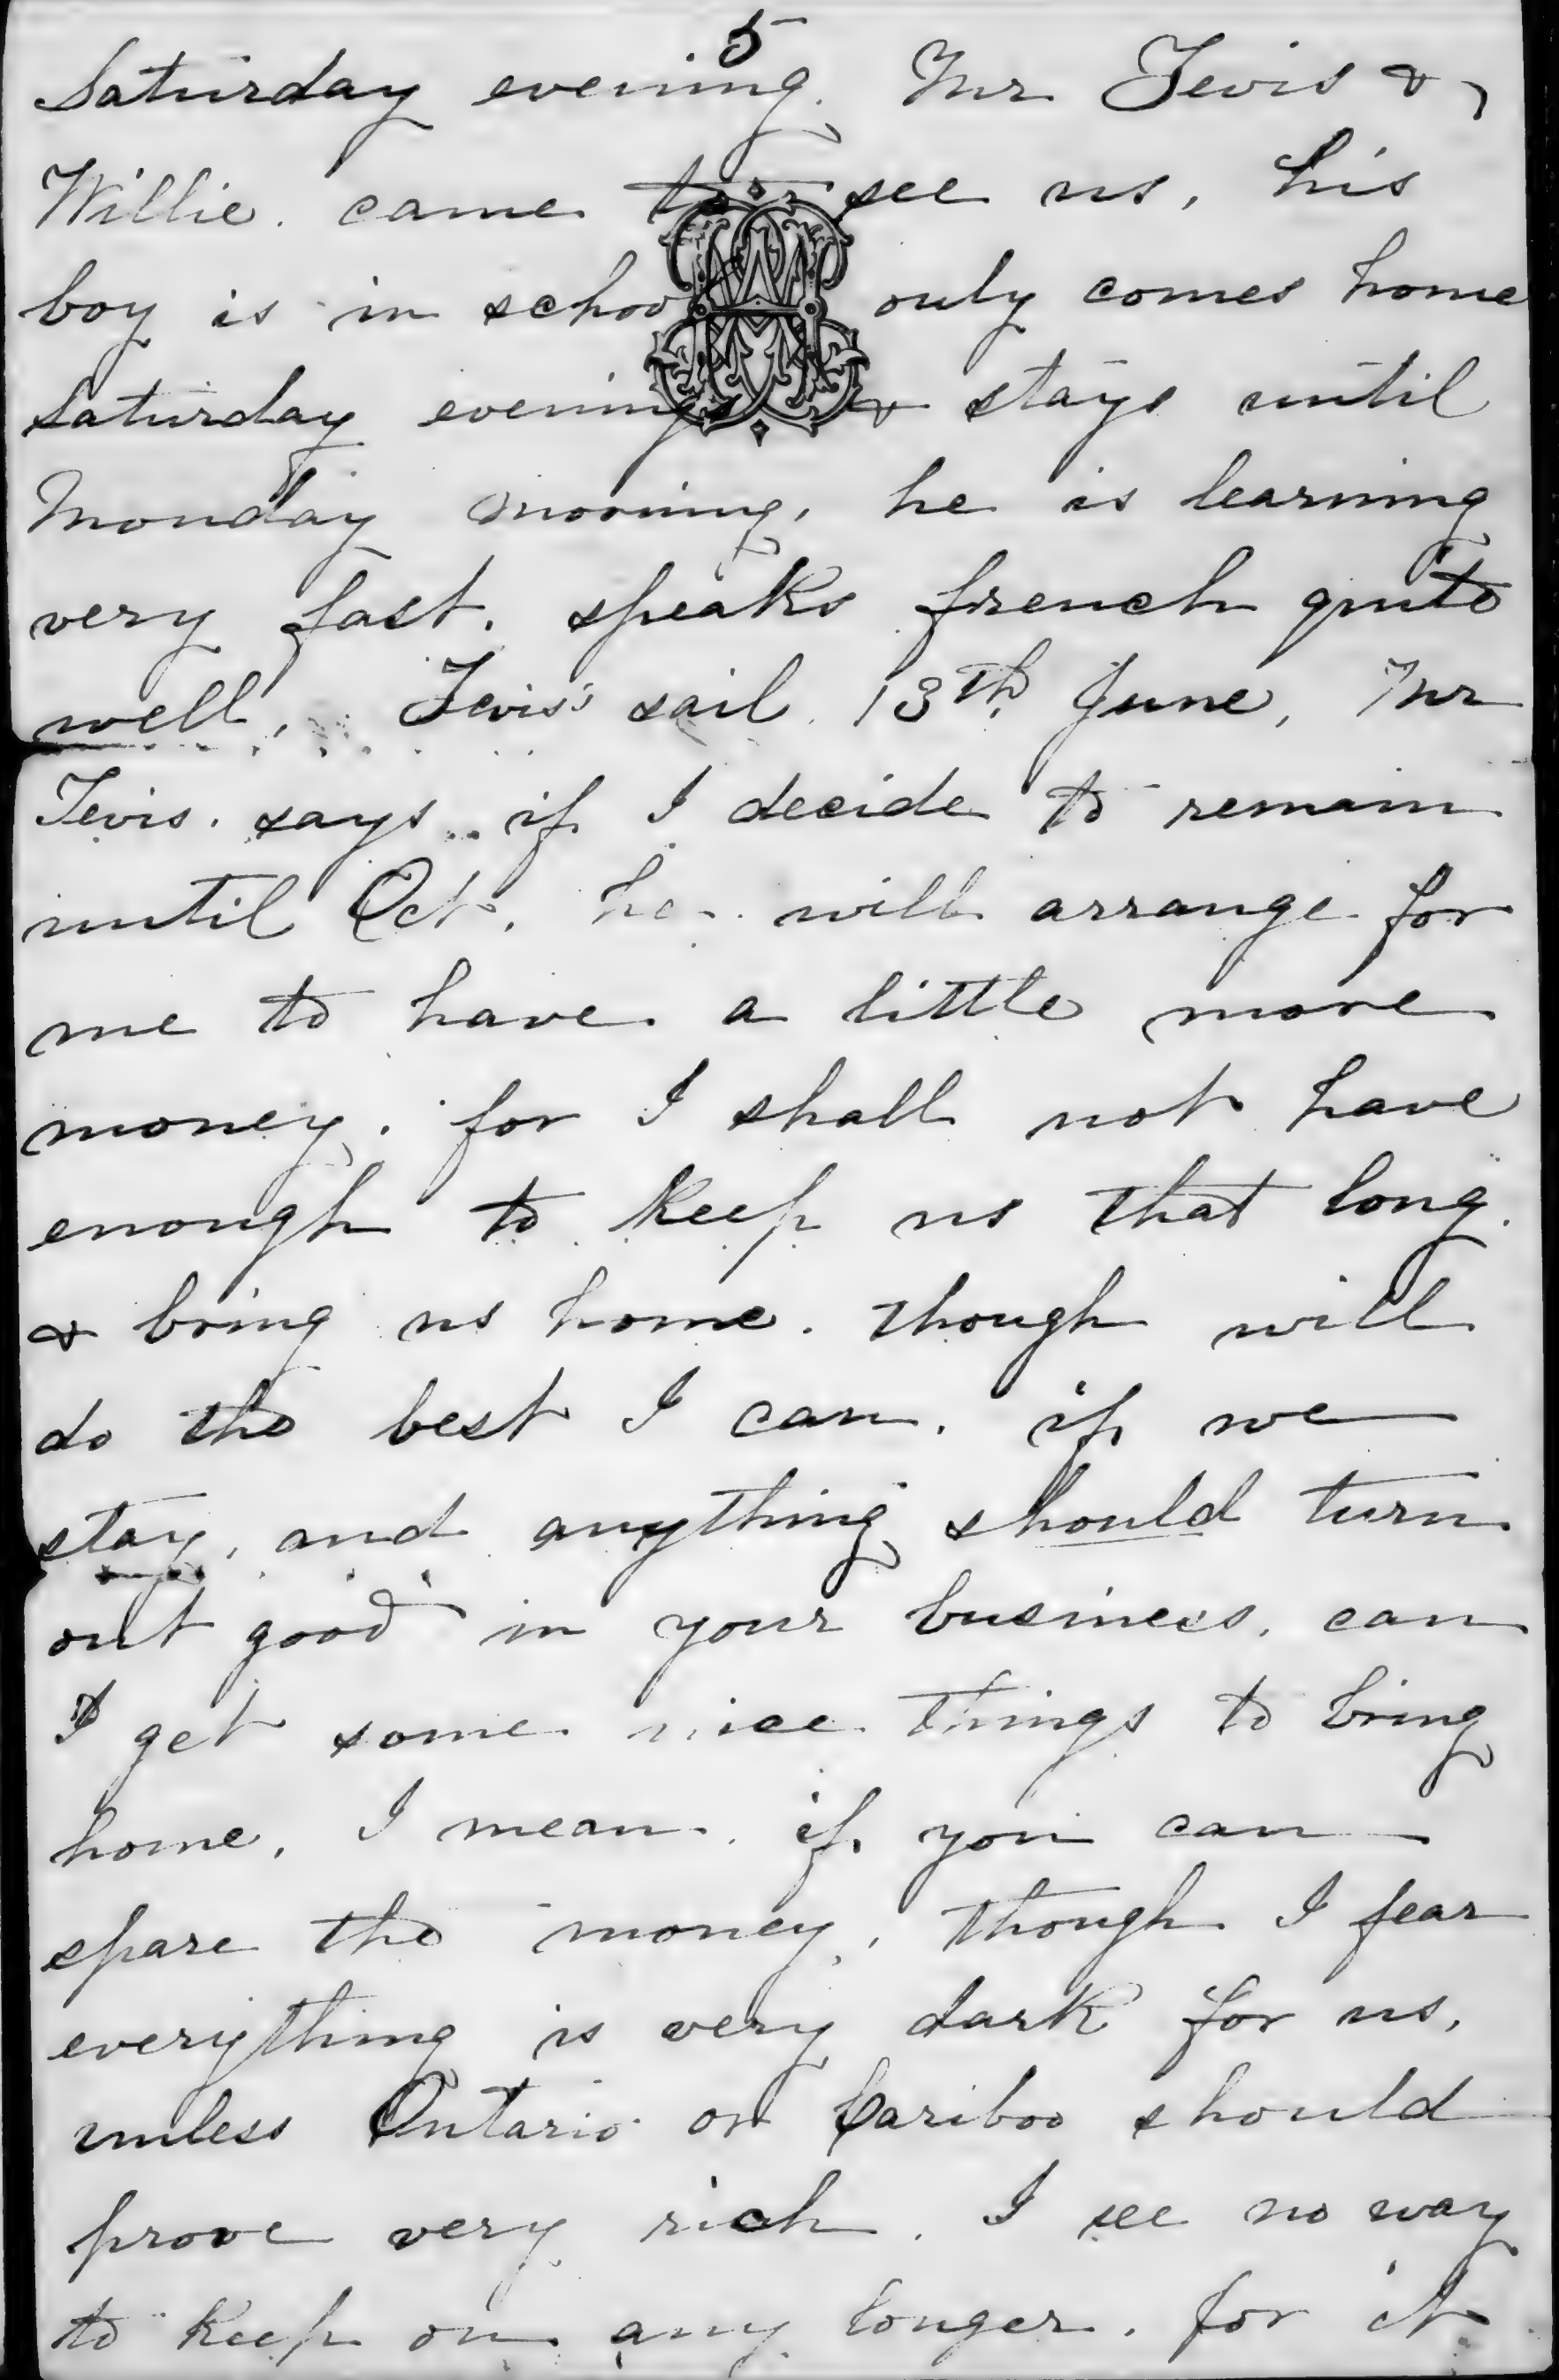 5
Saturday evening. Mr Tevis &
Willie. came to see us, his
boy is in school only comes home
Saturday evenings & stays until
Monday morning, he is learning
very fast. speaks french quite
well, Tevis's sail 13th June, Mr
Tevis. says if I decide to remain
until Oct. he will arrange for
me to have a little more
money. for I shall not have
enough to keep us that long.
& bring us home. though will
do the best I can. if we
stay, and anything should turn
out good in your business, can
I get some nice things to bring
home, I mean if you can
spare the money, though I fear
everything is very dark for us,
unless Ontario or Cariboo should
prove very rich. I see no way
to keep on any longer. for it